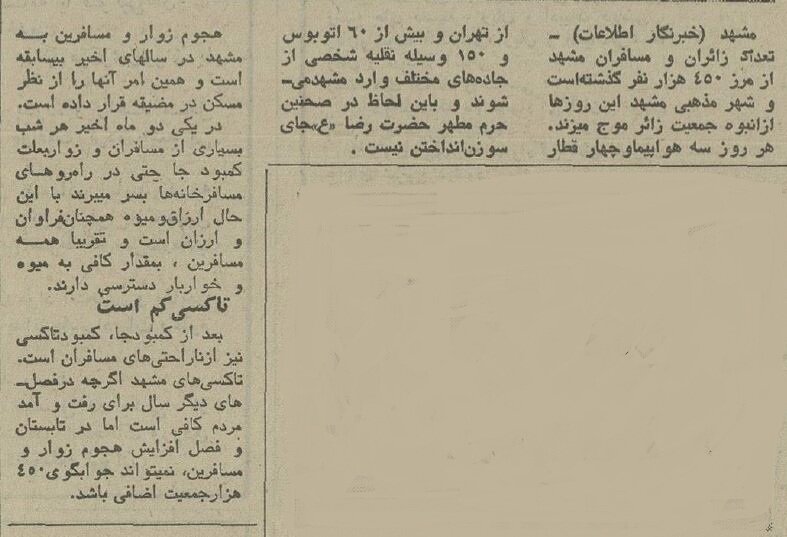 مشهد (خبرنگار اطلاعات) ـ
تعداد زائران و مسافران مشهد
از مرز ۴۵۰ هزار نفر گذشته‌است
و شهر مذهبی مشهد این روزها
ازانبوه جمعیت زائر موج میزند.
هر روز سه هواپیماوچهار قطار
از تهران و بیش از ۶۰ اتوبوس
و ۱۵۰ وسیله نقلیه شخصی از
جاده‌های مختلف وارد مشهدمی‌ـ
شوند و باین لحاظ در صحنین
حرم مطهر حضرت رضا «ع»جای
سوزن‌انداختن نیست .
هجوم زوار و مسافرین بــه
مشهد در سالهای اخیر بیسابقه
است و همین امر آنها را از نظر
مسکن در مضیقه قرار داده است.
در یکی دو ماه اخیر هر شب
بسیاری از مسافران و زواربعلت
کمبود جا حتی در راه‌روهـای
مسافرخانه‌ها بسر میبرند با این
حال ارزاق‌ومیوه همچنان‌فراوان
و ارزان است و تقریبا همــه
مسافرین ، بمقدار کافی به میوه
و خواربار دسترسی دارند.
تاکسی کم است
بعد از کمبودجا، کمبودتاکسی
نیز ازناراحتی‌های مسافران است.
تاکسی‌های مشهد اگرچه درفصل‌ـ
های دیگر سال برای رفت و آمد
مردم کافی است اما در تابستان
و فصل افزایش هجوم زوار و
مسافرین، نمیتواند جوابگوی ۴۵۰
هزارجمعیت اضافی باشد.